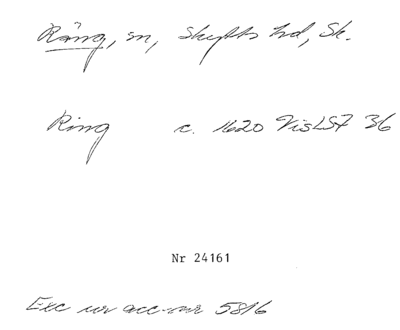 Räng, sn, Skytts hd, Sk.
Ring c. 1620 VisLSF 36
Nr 24161
Exc ur acc-nr 5816